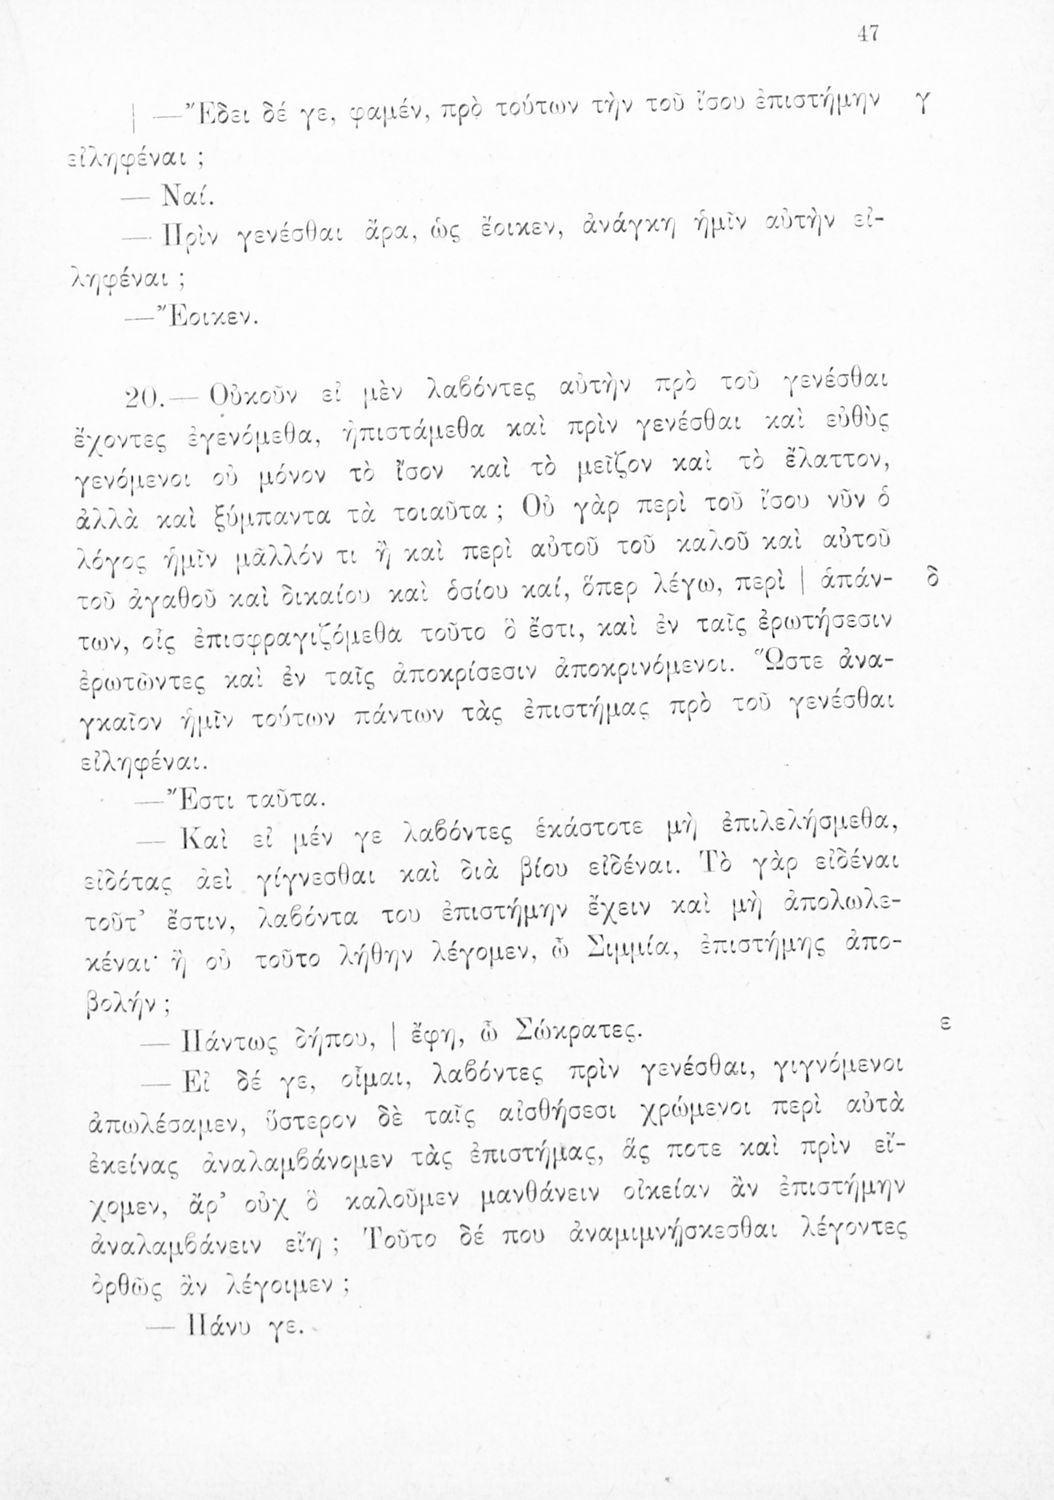 47
| —Ἔδει δέ γε, φαμέν, πρὸ τούτων τὴν τοῦ ἴσου ἐπιστήμην γ
εἰληφέναι ;
— Ναί.
— Πρὶν γενέσθαι ἄρα, ὡς ἔοικεν, ἀνάγκη ἡμῖν αὐτὴν εἰ-
ληφέναι ;
—Ἔοικεν.
20.— Οὐκοῦν εἰ μὲν λαϐόντες αὐτὴν πρὸ τοῦ γενέσθαι
ἔχοντες ἐγενόμεθα, ἠπιστάμεθα καὶ πρὶν γενέσθαι καὶ εὐθὺς
γενόμενοι οὐ μόνον τὸ ἴσον καὶ τὸ μεῖζον καὶ τὸ ἔλαττον,
ἀλλὰ καὶ ξύμπαντα τὰ τοιαῦτα ; Οὐ γὰρ περὶ τοῦ ἴσου νῦν ὁ
λόγος ἡμῖν μᾶλλόν τι ἢ καὶ περὶ αὐτοῦ τοῦ καλοῦ καὶ αὐτοῦ
τοῦ ἀγαθοῦ καὶ δικαίου καὶ ὁσίου καί, ὅπερ λέγω, περὶ | ἁπάν- δ
των, οἷς ἐπισφραγιζόμεθα τοῦτο ὃ ἔστι, καὶ ἐν ταῖς ἐρωτήσεσιν
ἐρωτῶντες καὶ ἐν ταῖς ἀποκρίσεσιν ἀποκρινόμενοι. Ὥστε ἀνα-
γκαῖον ἡμῖν τούτων πάντων τὰς ἐπιστήμας πρὸ τοῦ γενέσθαι
εἰληφέναι.
—Ἔστι ταῦτα.
— Καὶ εἰ μέν γε λαϐόντες ἑκάστοτε μὴ ἐπιλελήσμεθα,
εἰδότας ἀεὶ γίγνεσθαι καὶ διὰ βίου εἰδέναι. Τὸ γὰρ εἰδέναι
τοῦτ’ ἔστιν, λαϐόντα του ἐπιστήμην ἔχειν καὶ μὴ ἀπολωλε-
κέναι· ἢ οὐ τοῦτο λήθην λέγομεν, ὦ Σιμμία, ἐπιστήμης ἀπο-
βολήν ;
— Πάντως δήπου, | ἔφη, ὦ Σώκρατες. ε
— Εἰ δέ γε, οἶμαι, λαϐόντες πρὶν γενέσθαι, γιγνόμενοι
ἀπωλέσαμεν, ὕστερον δὲ ταῖς αἰσθήσεσι χρώμενοι περὶ αὐτὰ
ἐκείνας ἀναλαμϐάνομεν τὰς ἐπιστήμας, ἅς ποτε καὶ πρὶν εἴ-
χομεν, ἆρ’ οὐχ ὃ καλοῦμεν μανθάνειν οἰκείαν ἂν ἐπιστήμην
ἀναλαμϐάνειν εἴη ; Τοῦτο δέ που ἀναμιμνῄσκεσθαι λέγοντες
ὀρθῶς ἂν λέγοιμεν ;
— Πάνυ γε.